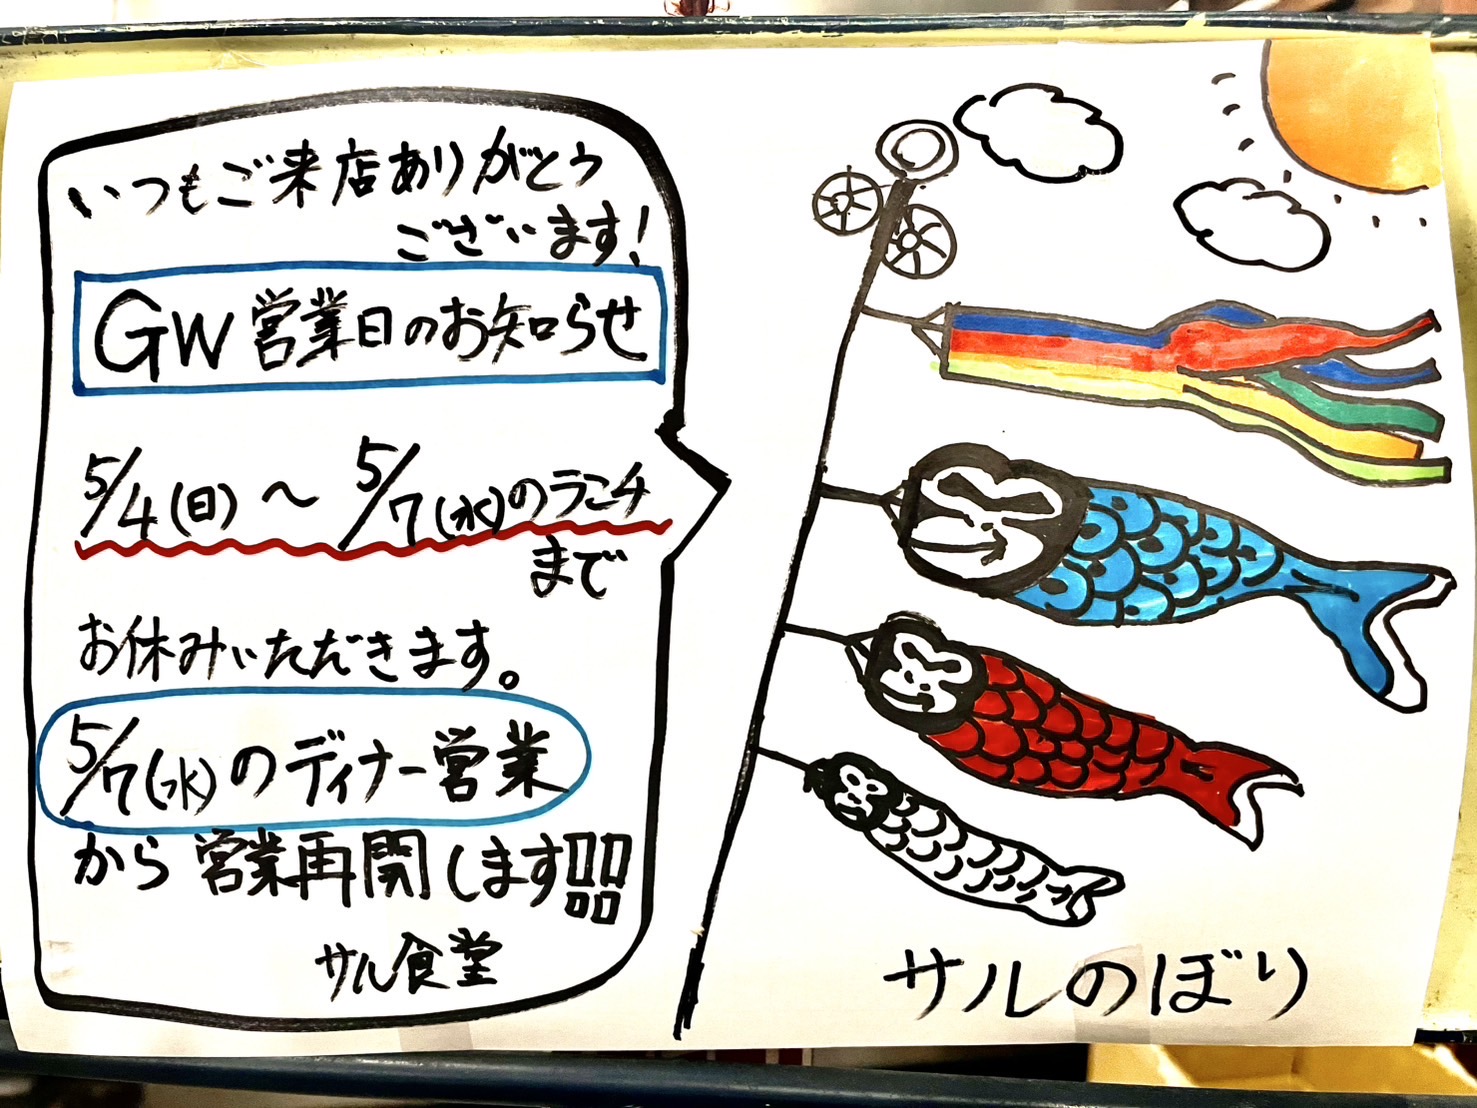 いつもご来店ありがとう
ございます!
GW営業日のお知らせ
5/4(日)～5/7(水)のランチ
まで
お休みいただきます。
5/7(水)のディナー営業
から営業再開します!!
サル食堂
サルのぼり